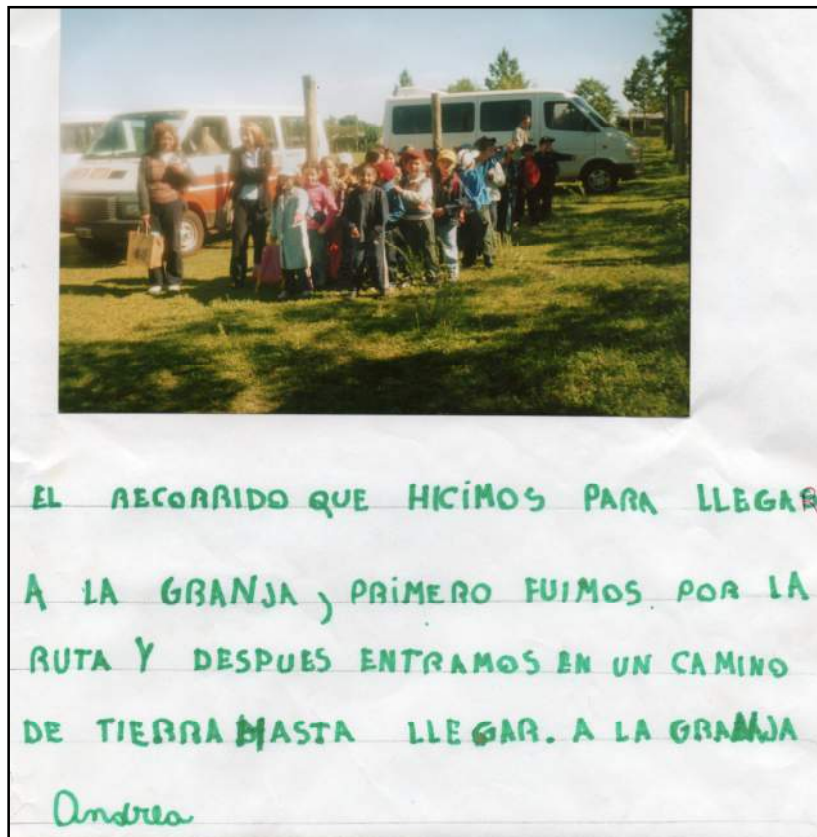 EL RECORRIDO QUE HICIMOS PARA LLEGAR
A LA GRANJA, PRIMERO FUIMOS. POR LA
RUTA Y DESPUES ENTRAMOS EN UN CAMINO
DE TIERRA HASTA LLEGAR. A LA GRANJA
Andrea